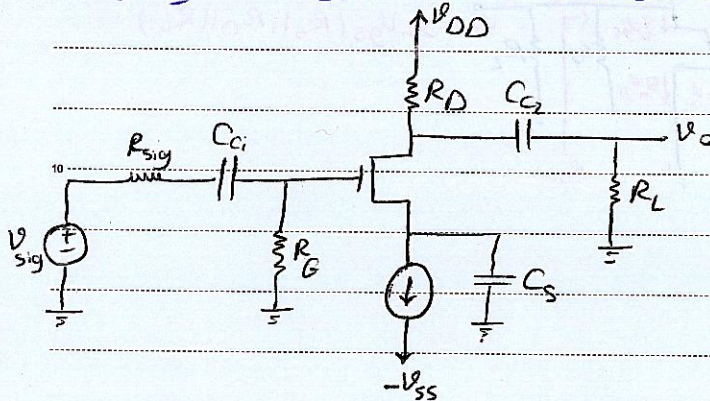 V_DD
R_D
C_C2
R_sig
C_C1
10
V_o
R_L
V_sig
+
−
R_G
C_S
-V_SS